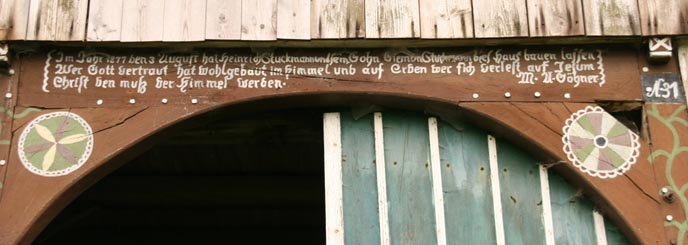 Im Jahr 1877 den 3 August hat Heinrich Stuckmann und sein Sohn Clemon Stuckmann dies Haus bauen lassen
Wer Gott vertraut hat wohlgebaut im Himmel und auf Erden wer sich verlest auf Jesum
Christ den muß der Himmel werden.
M. A. Göhner
N 31